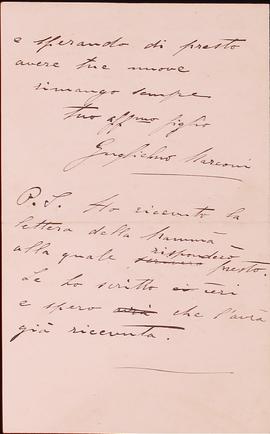 e sperando di presto
avere tue nuove
rimango sempre
tuo affmo figlio
Guglielmo Marconi
P.S. Ho ricevuto la
lettera della Mamma
alla quale risponderò presto.
Le ho scritto ieri
e spero che l'avrà
già ricevuta.